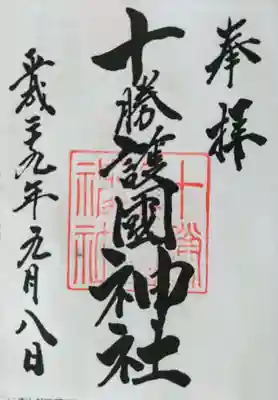 奉拝
十勝護國神社
平成二九年九月八日